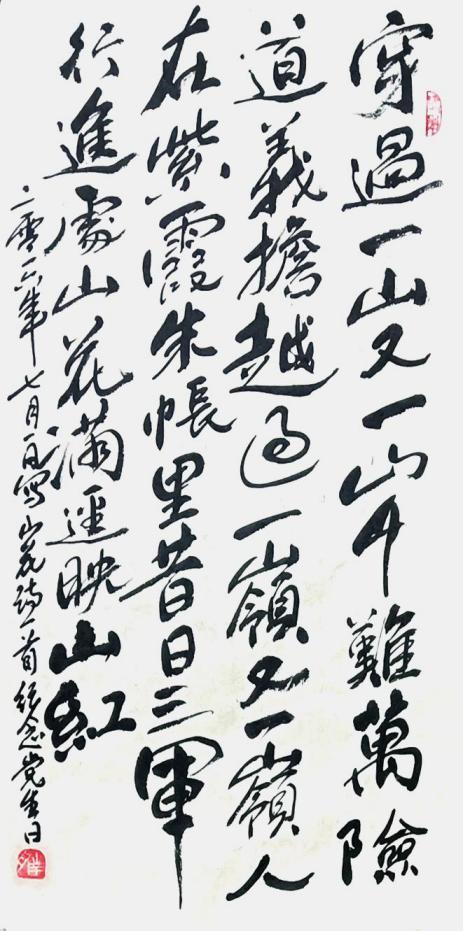 穿過一山又一山千難萬險
道義擔越過一嶺又一嶺人
在紫霞朱帳里昔日三軍
行進處山花滿逕映山紅
二零一六年七月一日寫山花詩一首纪念党生日